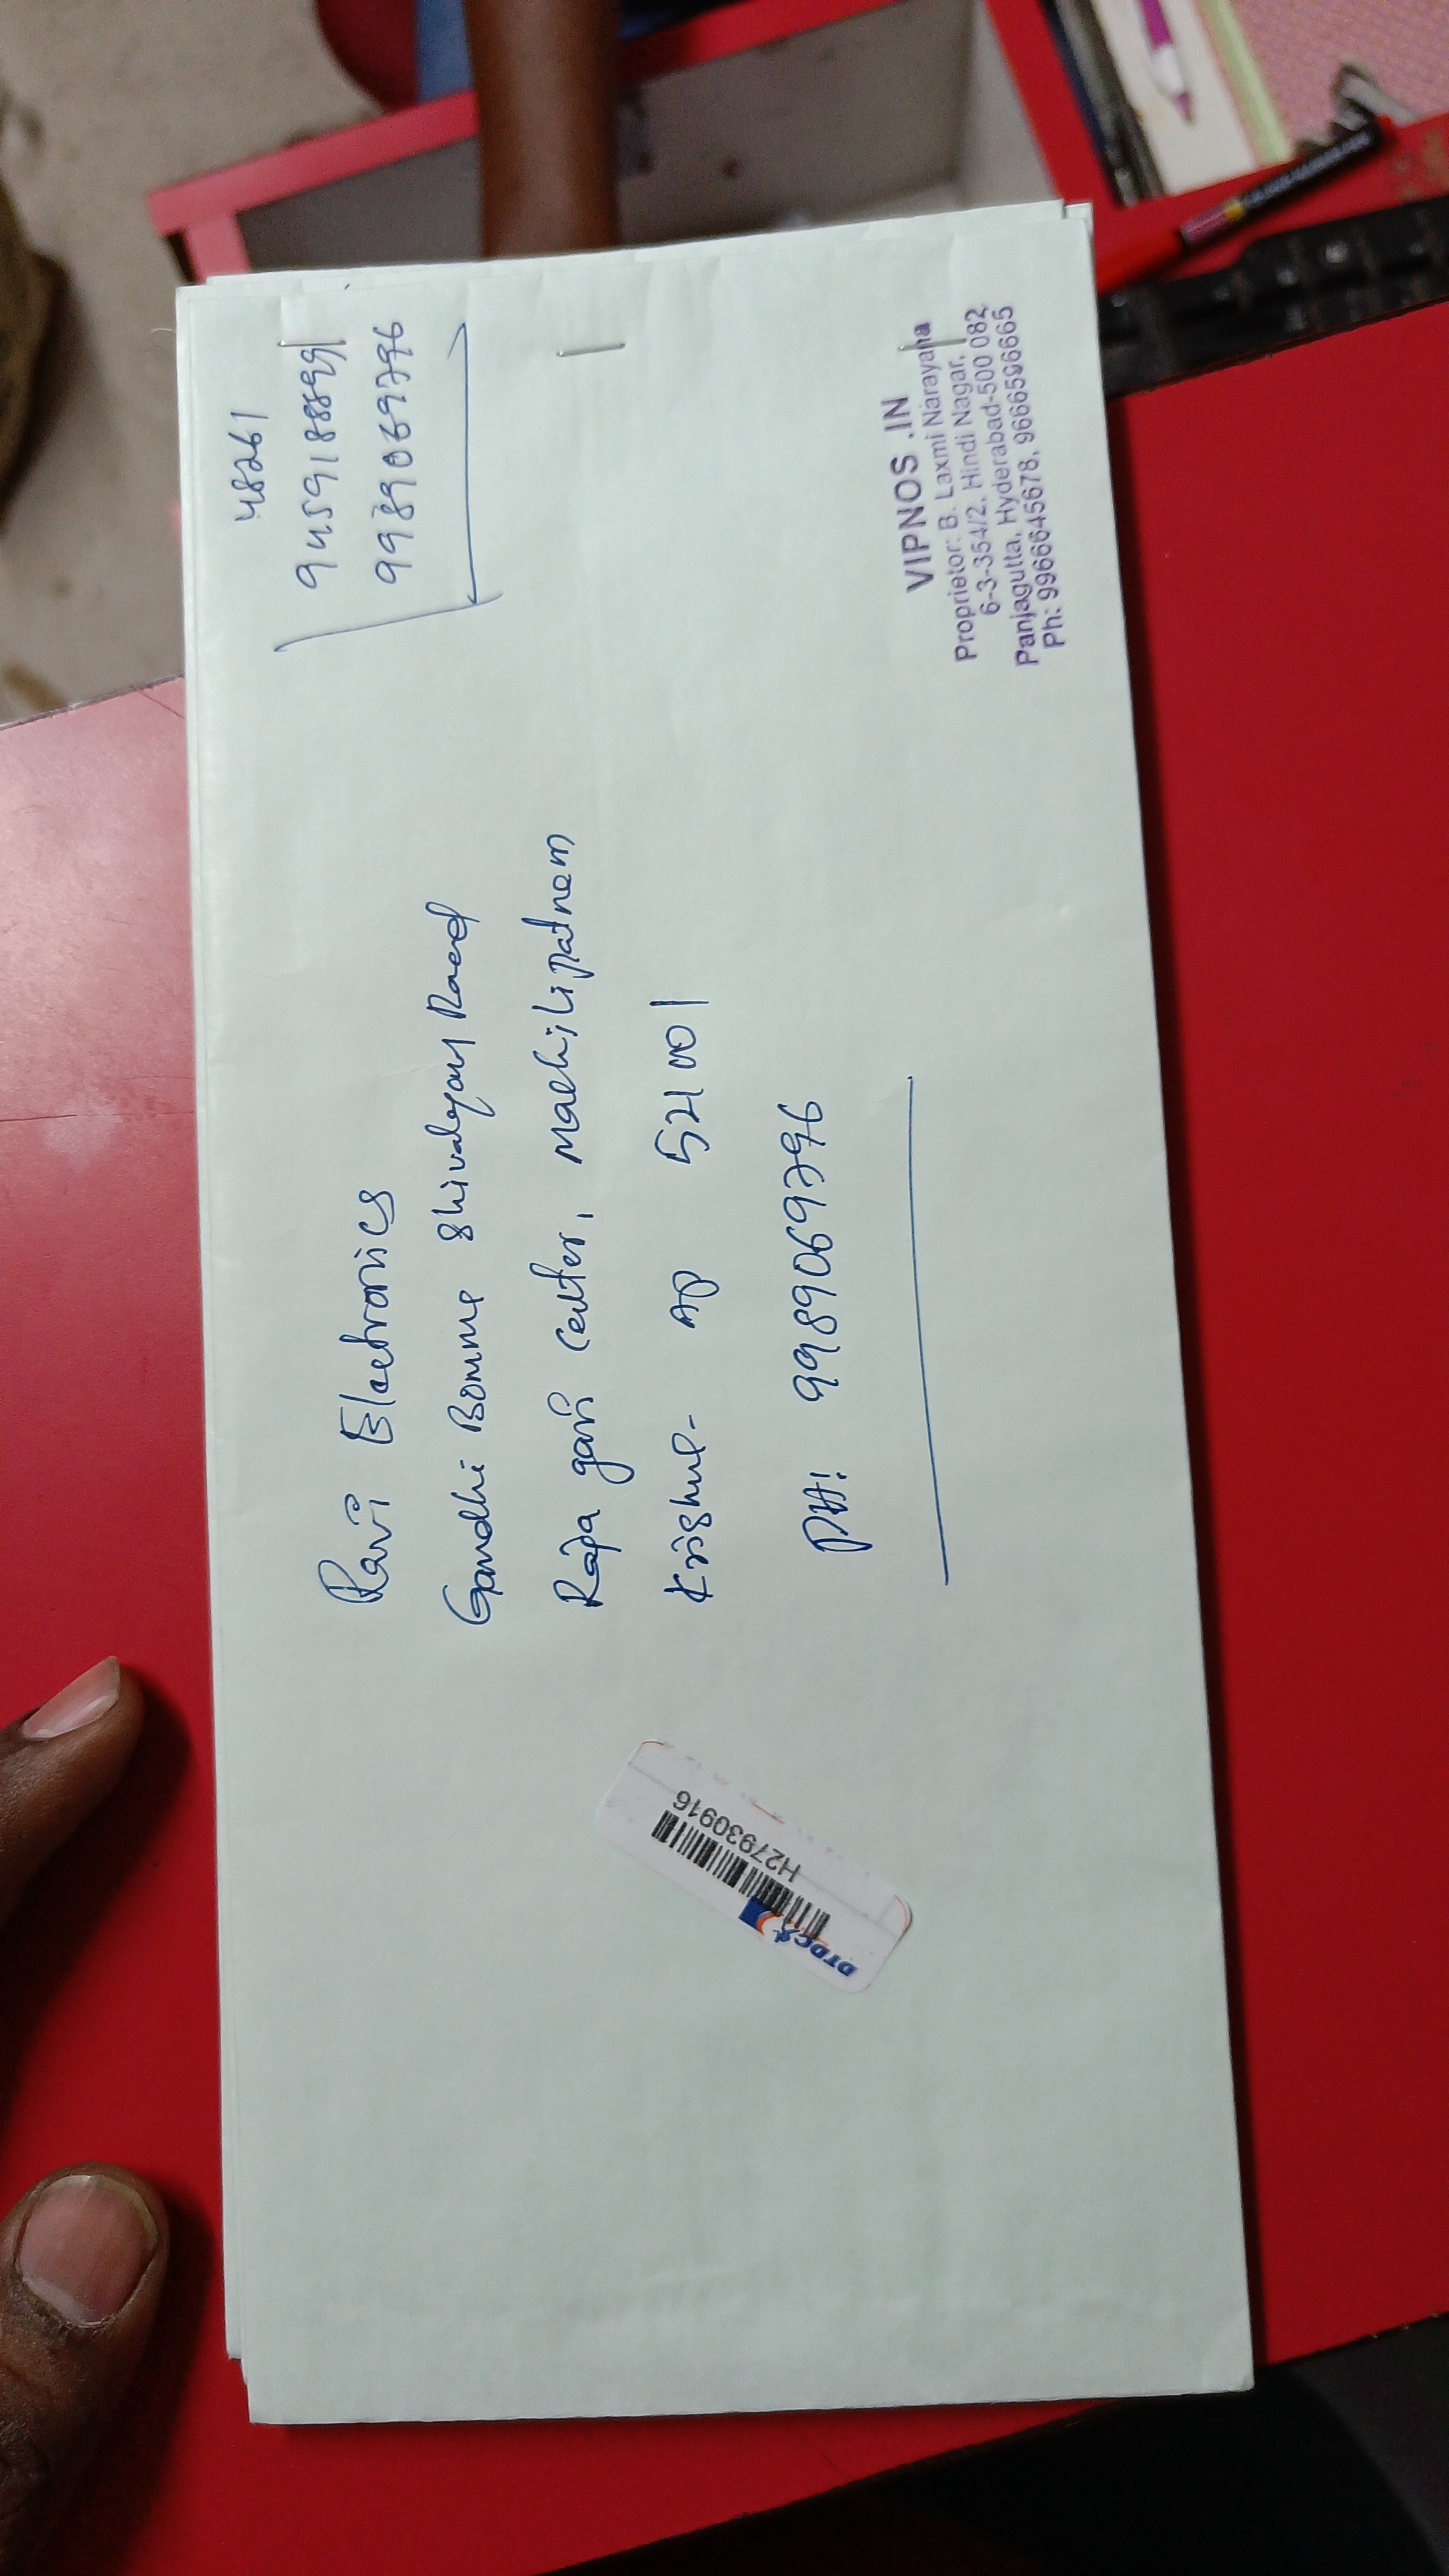 48261
9459188899
9989069796
Ravi Electronics
Gandhi Bomme Shivalayam Raod
Raja gari Center, Machilipatnam
Krishna- AP 521001
PH: 9989069796
VIPNOS.IN
Proprietor: B. Laxmi Narayana
6-3-354/2, Hindi Nagar,
Panjagutta, Hyderabad-500 082
Ph: 9966645678, 9666596665
DTDC
H27930916